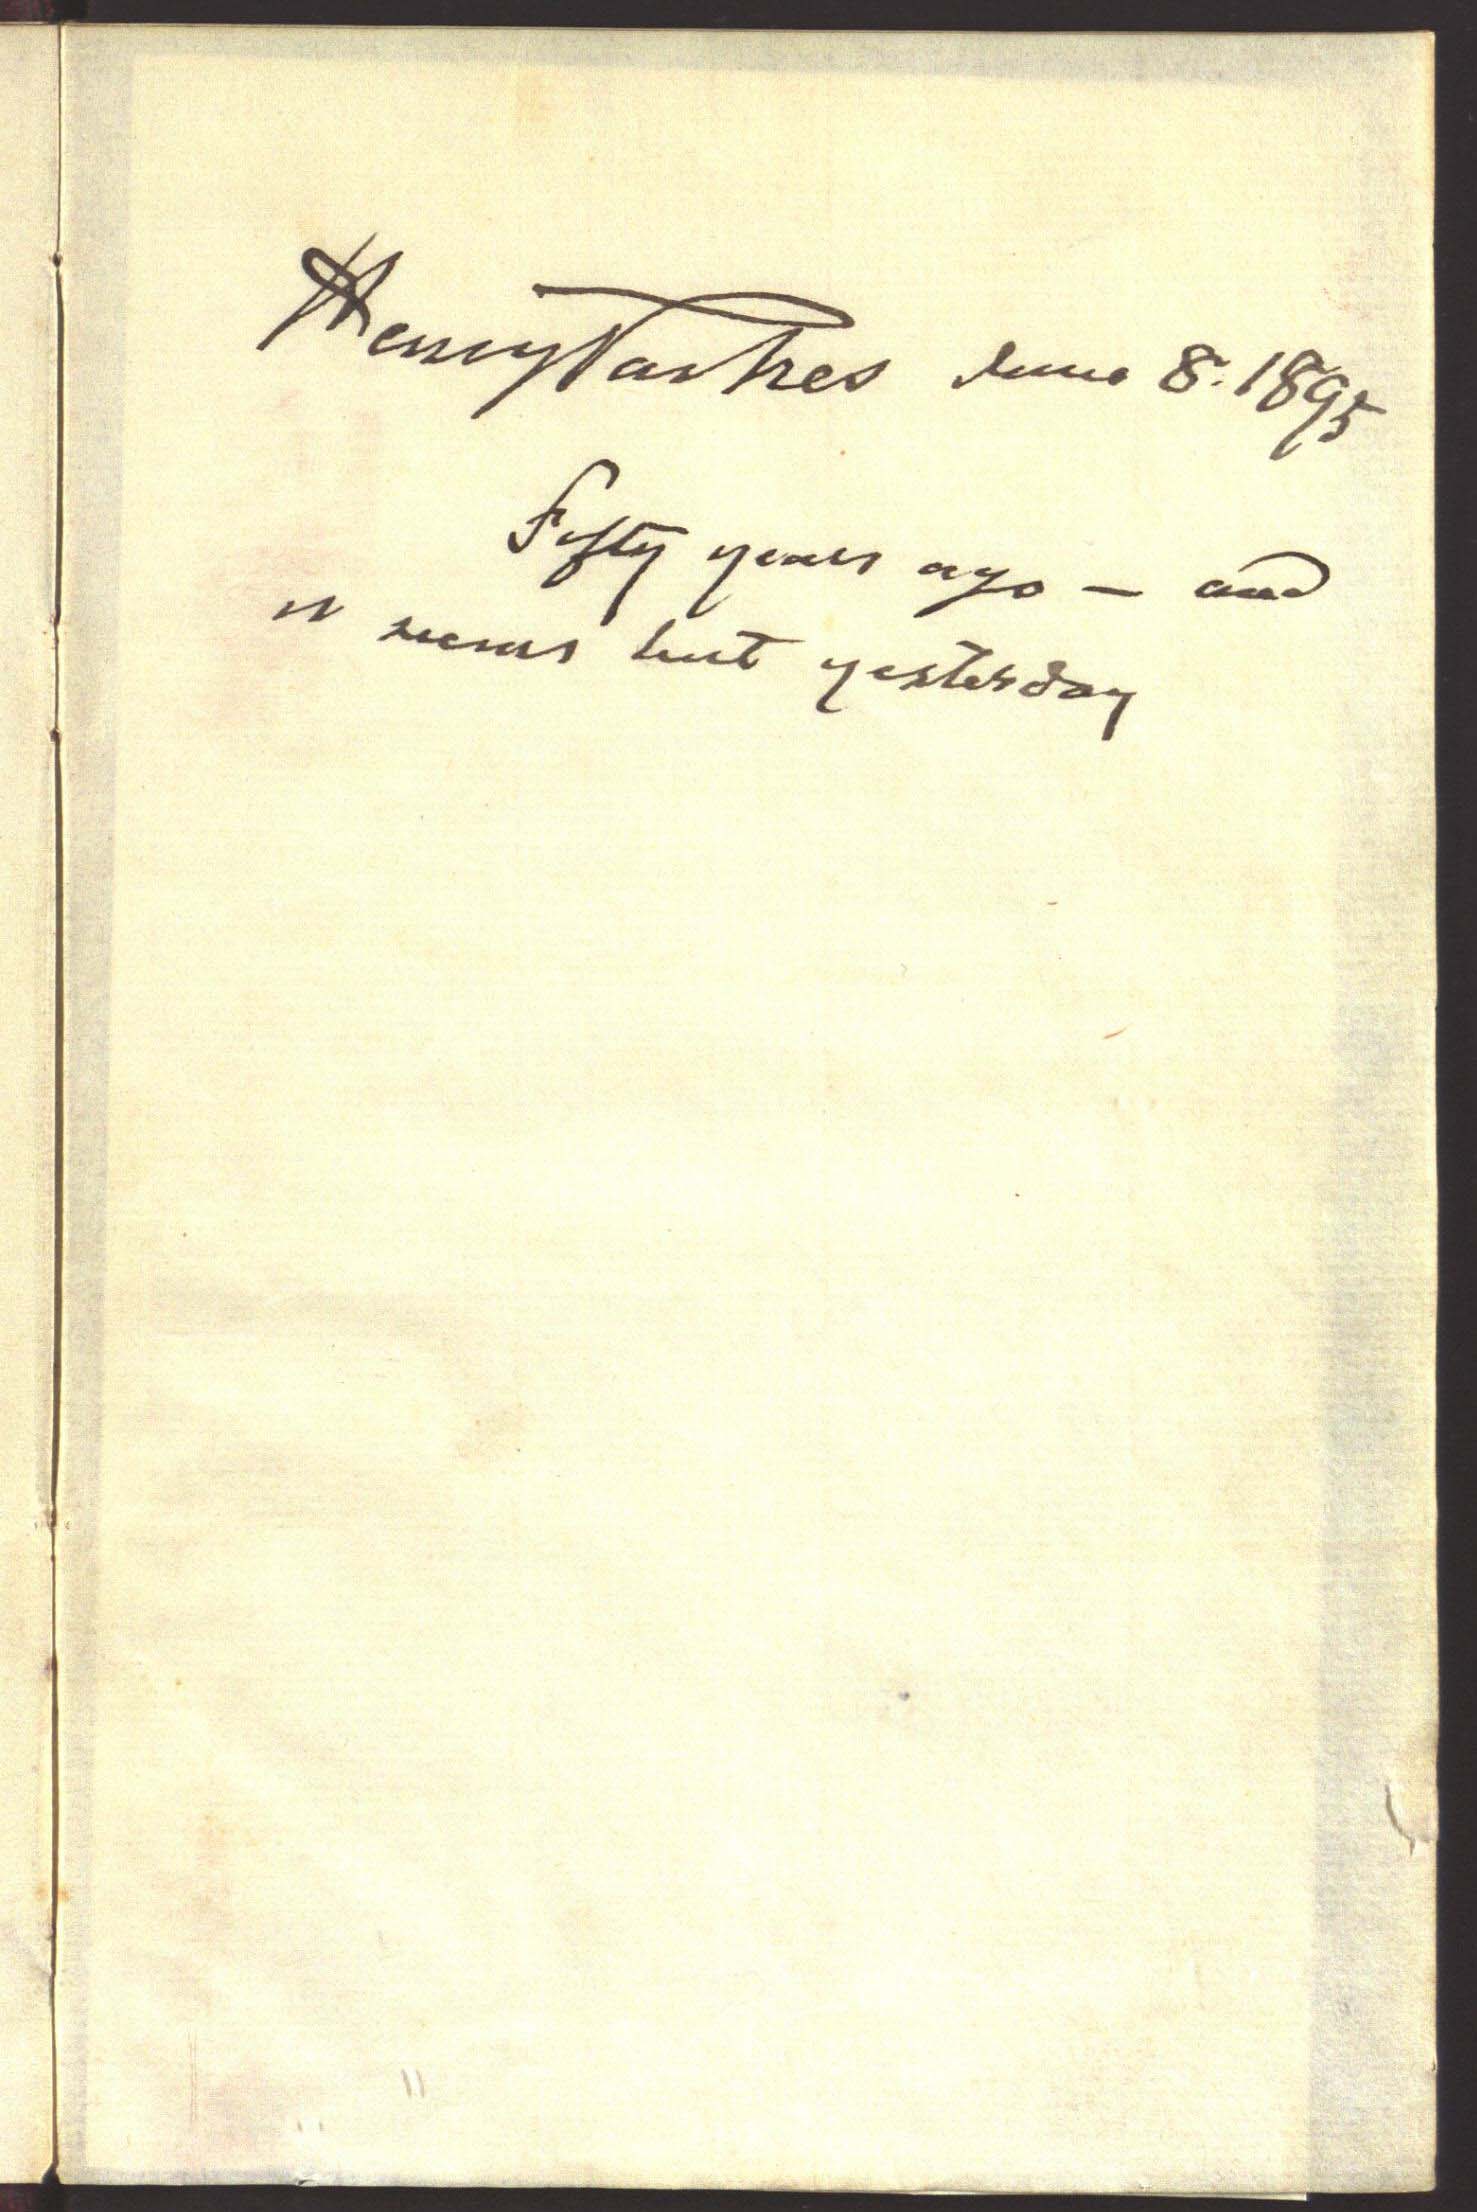 Henry Parkes June 8. 1895
Fifty years ago — and
it seems but yesterday